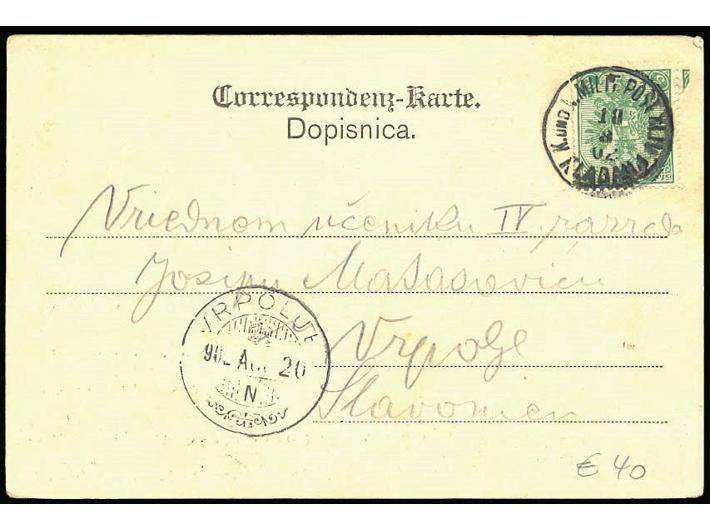 Correspondenz-Karte.
Dopisnica.
K. UND K. MILIT. POST
KLADANJ
19
8
02
Vriednom učeniku IV. razreda
Josipu Matasoviću
Vrpolje
Slavonien
VRPOLJE
902 AUG 20
N
€ 40